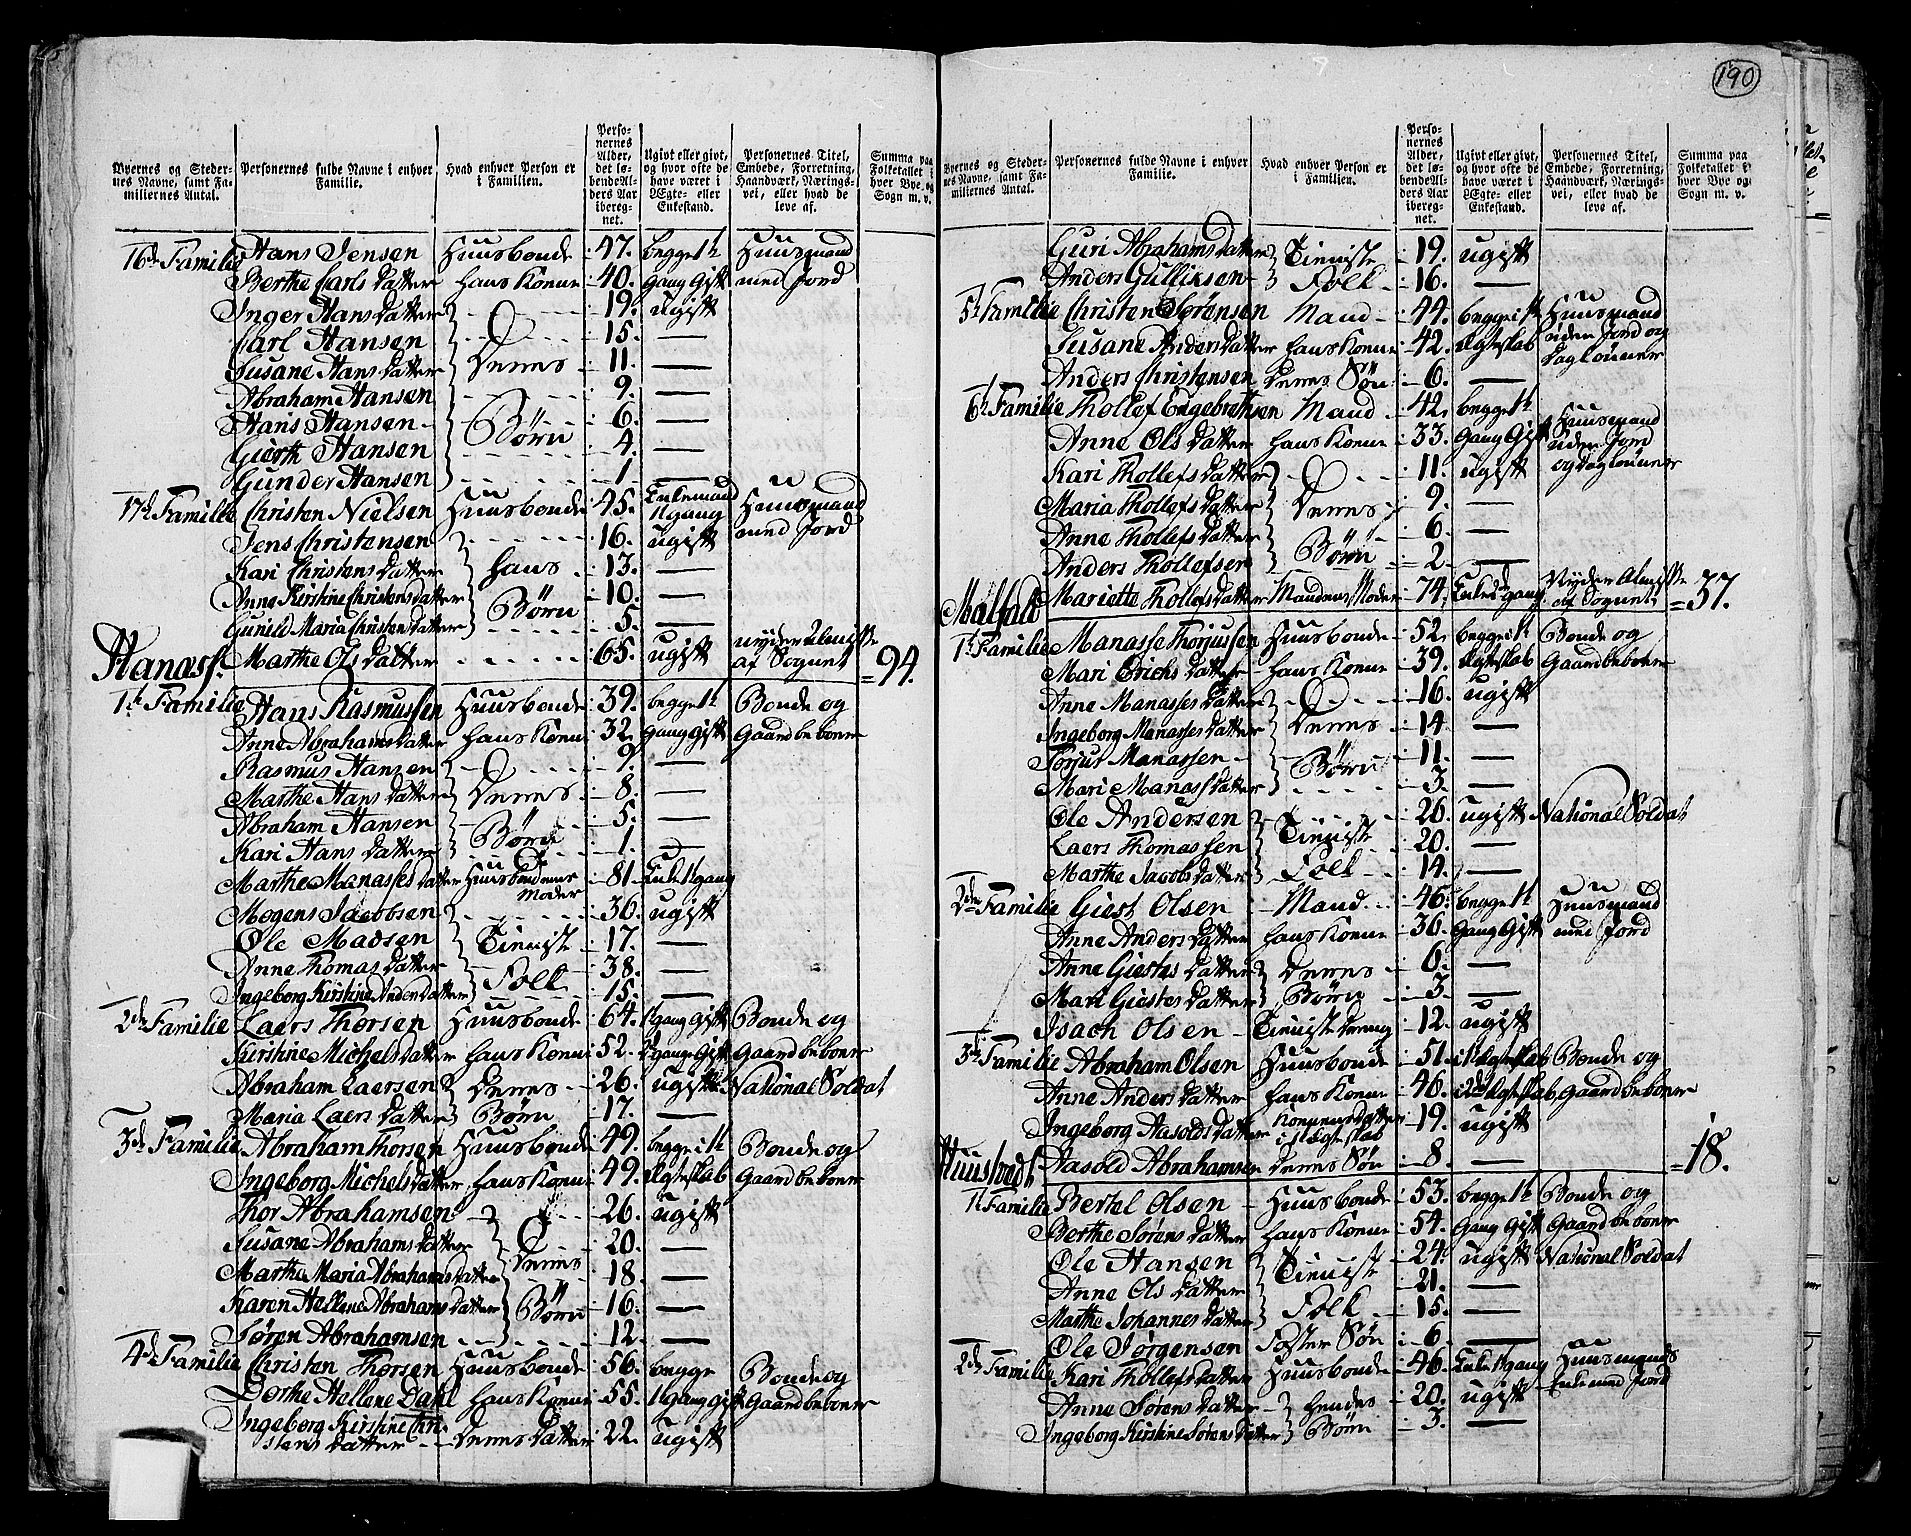 190
Byernes og Steder-
nes Navne, samt Fa-
miliernes Antal.
Personernes fulde Navne i enhver
Familie.
Hvad enhver Person er
i Familien.
Perso-
nernes
Alder,
det lø-
bende Al-
ders Aar
ibereg-
net.
Ugivt eller givt,
og hvor ofte de
have været i
Ægte- eller
Enkestand.
Personernes Titel,
Embede, Forretning,
Haandværk, Nærings-
vei, eller hvad de
leve af.
Summa paa
Folketallet i
hver Bye og
Sogn m. v.
16de Familie Hans Jensen Huusbonde 47. begge 1te Huusmand
Berthe Carls datter hans Kone 40. Gang Gift med Jord
Inger Hans datter 19. ugift
Carl Hansen 15. —
Susane Hans datter Deres 11. —
Abraham Hansen 9. —
Hans Hansen 6. —
Gierth Hansen Børn 4. —
Gunder Hansen 1. —
17de Familie Christen Nielsen Huusbonde 45. Enkemand 1t gang Huusmand
Jens Christensen 16. ugift med Jord
Kari Christens datter hans 13. —
Anne Kirstine Christens datter 10. —
Gunild Maria Christen datter Børn 5. —
Marthe Ols datter 65. ugift nyder Almisse af Sognet = 94.
Hanass.
1te Familie Hans Rasmussen Huusbonde 39. begge 1te Bonde og
Anne Abrahams datter hans Kone 32. Gang Gift Gaardbeboer
Rasmus Hansen 9. —
Marthe Hans datter Deres 8. —
Abraham Hansen 5. —
Kari Hans datter Børn 1. —
Marthe Manasses datter Huusbondens Moder 81. Enke 1t gang
Mogens Jacobsen 36. ugift
Ole Madsen Tieniste 17. —
Anne Thomas datter 38. —
Ingeborg Kirstine Anders datter Folk 15. —
2de Familie Laers Thorsen Huusbonde 64. 1t Gang Gift Bonde og
Kirstine Michels datter hans Kone 52. 2 gange Gift Gaardbeboer
Abraham Laersen Deres 26. ugift National Soldat
Maria Laers datter Børn 17. —
3de Familie Abraham Thorsen Huusbonde 49. begge i 1te Bonde og
Ingeborg Michels datter hans Kone 49. Ægteskab Gaardbeboer
Thor Abrahamsen 26. ugift
Susane Abrahams datter 20. —
Marthe Maria Abrahams datter Deres 18. —
Karen Hellene Abrahams datter Børn 16. —
Søren Abrahamsen 12. —
4de Familie Christen Thorsen Huusbonde 56. begge Bonde og
Dorthe Hellene Dahl hans Kone 55. 1t Gang Gift Gaardbeboer
Ingeborg Kirstine Chri-
stens datter Deres datter 22. ugift
Byernes og Steder-
nes Navne, samt Fa-
miliernes Antal.
Personernes fulde Navne i enhver
Familie.
Hvad enhver Person er
i Familien.
Perso-
nernes
Alder,
det lø-
bende Al-
ders Aar
ibereg-
net.
Ugivt eller givt,
og hvor ofte de
have været i
Ægte- eller
Enkestand.
Personernes Titel,
Embede, Forretning,
Haandværk, Nærings-
vei, eller hvad de
leve af.
Summa paa
Folketallet i
hver Bye og
Sogn m. v.
Guri Abrahams datter Tieniste 19. ugift
Anders Gulliksen Folk 16. —
5te Familie Christen Sørensen Mand 44. begge i 1te Huusmand
Susane Anders datter hans Kone 42. Ægteskab uden Jord og
Anders Christensen Deres Søn 6. — Daglønner
6te Familie Thollef Engebrethsen Mand 42. begge 1te Huusmand
Anne Ols datter hans Kone 33. Gang Gift uden Jord
Kari Thollefs datter 11. ugift og daglønner
Maria Thollefs datter Deres 9. —
Anne Thollefs datter 6. —
Anders Thollefsen Børn 2. —
Mariette Thollefs datter Mandens Moder 74. Enke gang Nyder Almisse af Sognet = 37.
Malfald
1te Familie Manasse Thorjussen Huusbonde 52. begge i 1te Bonde og
Mari Erichs datter hans Kone 39. Ægteskab Gaardbeboer
Anne Manasses datter 16. ugift
Ingeborg Manasses datter Deres 14 —
Torjus Manassen 11. —
Mari Manass datter Børn 3. —
Ole Andersen 26. ugift National Soldat
Laers Thomassen Tieniste 20. —
Marthe Jacobs datter Folk 14. —
2de Familie Giest Olsen Mand 46. begge 1te Huusmand
Anne Anders datter hans Kone 36. Gang Gift med Jord
Anne Giestes datter Deres 6. —
Mari Giestes datter Børn 3. —
Isach Olsen Tieniste dreng 12. ugift
3de Familie Abraham Olsen Huusbonde 51. i 1te Ægteskab Bonde og
Anne Anders datter hans Kone 46. i 2det Ægteskab Gaardbeboer
Ingeborg Aasolds datter Konens datter i 1ste Ægteskab 19. ugift
Aasold Abrahamsen Deres Søn 8. — = 18.
1te Familie Bertel Olsen Huusbonde 53. begge 1te Bonde og
Berthe Sørens datter hans Kone 54. Gang Gift Gaardbeboer
Ole Hansen 24. ugift National Soldat
Anne Ols datter Tieniste 21. —
Marthe Johannes datter Folk 15. —
Ole Jørgensen Foster Søn 6. —
2de Familie Kari Thollefs datter Huusbonde 46. Enke 1t gang Huusmands
Anne Sørens datter hendes 20. ugift Enke med Jord
Ingeborg Kirstine Sørens datter Børn 3. —